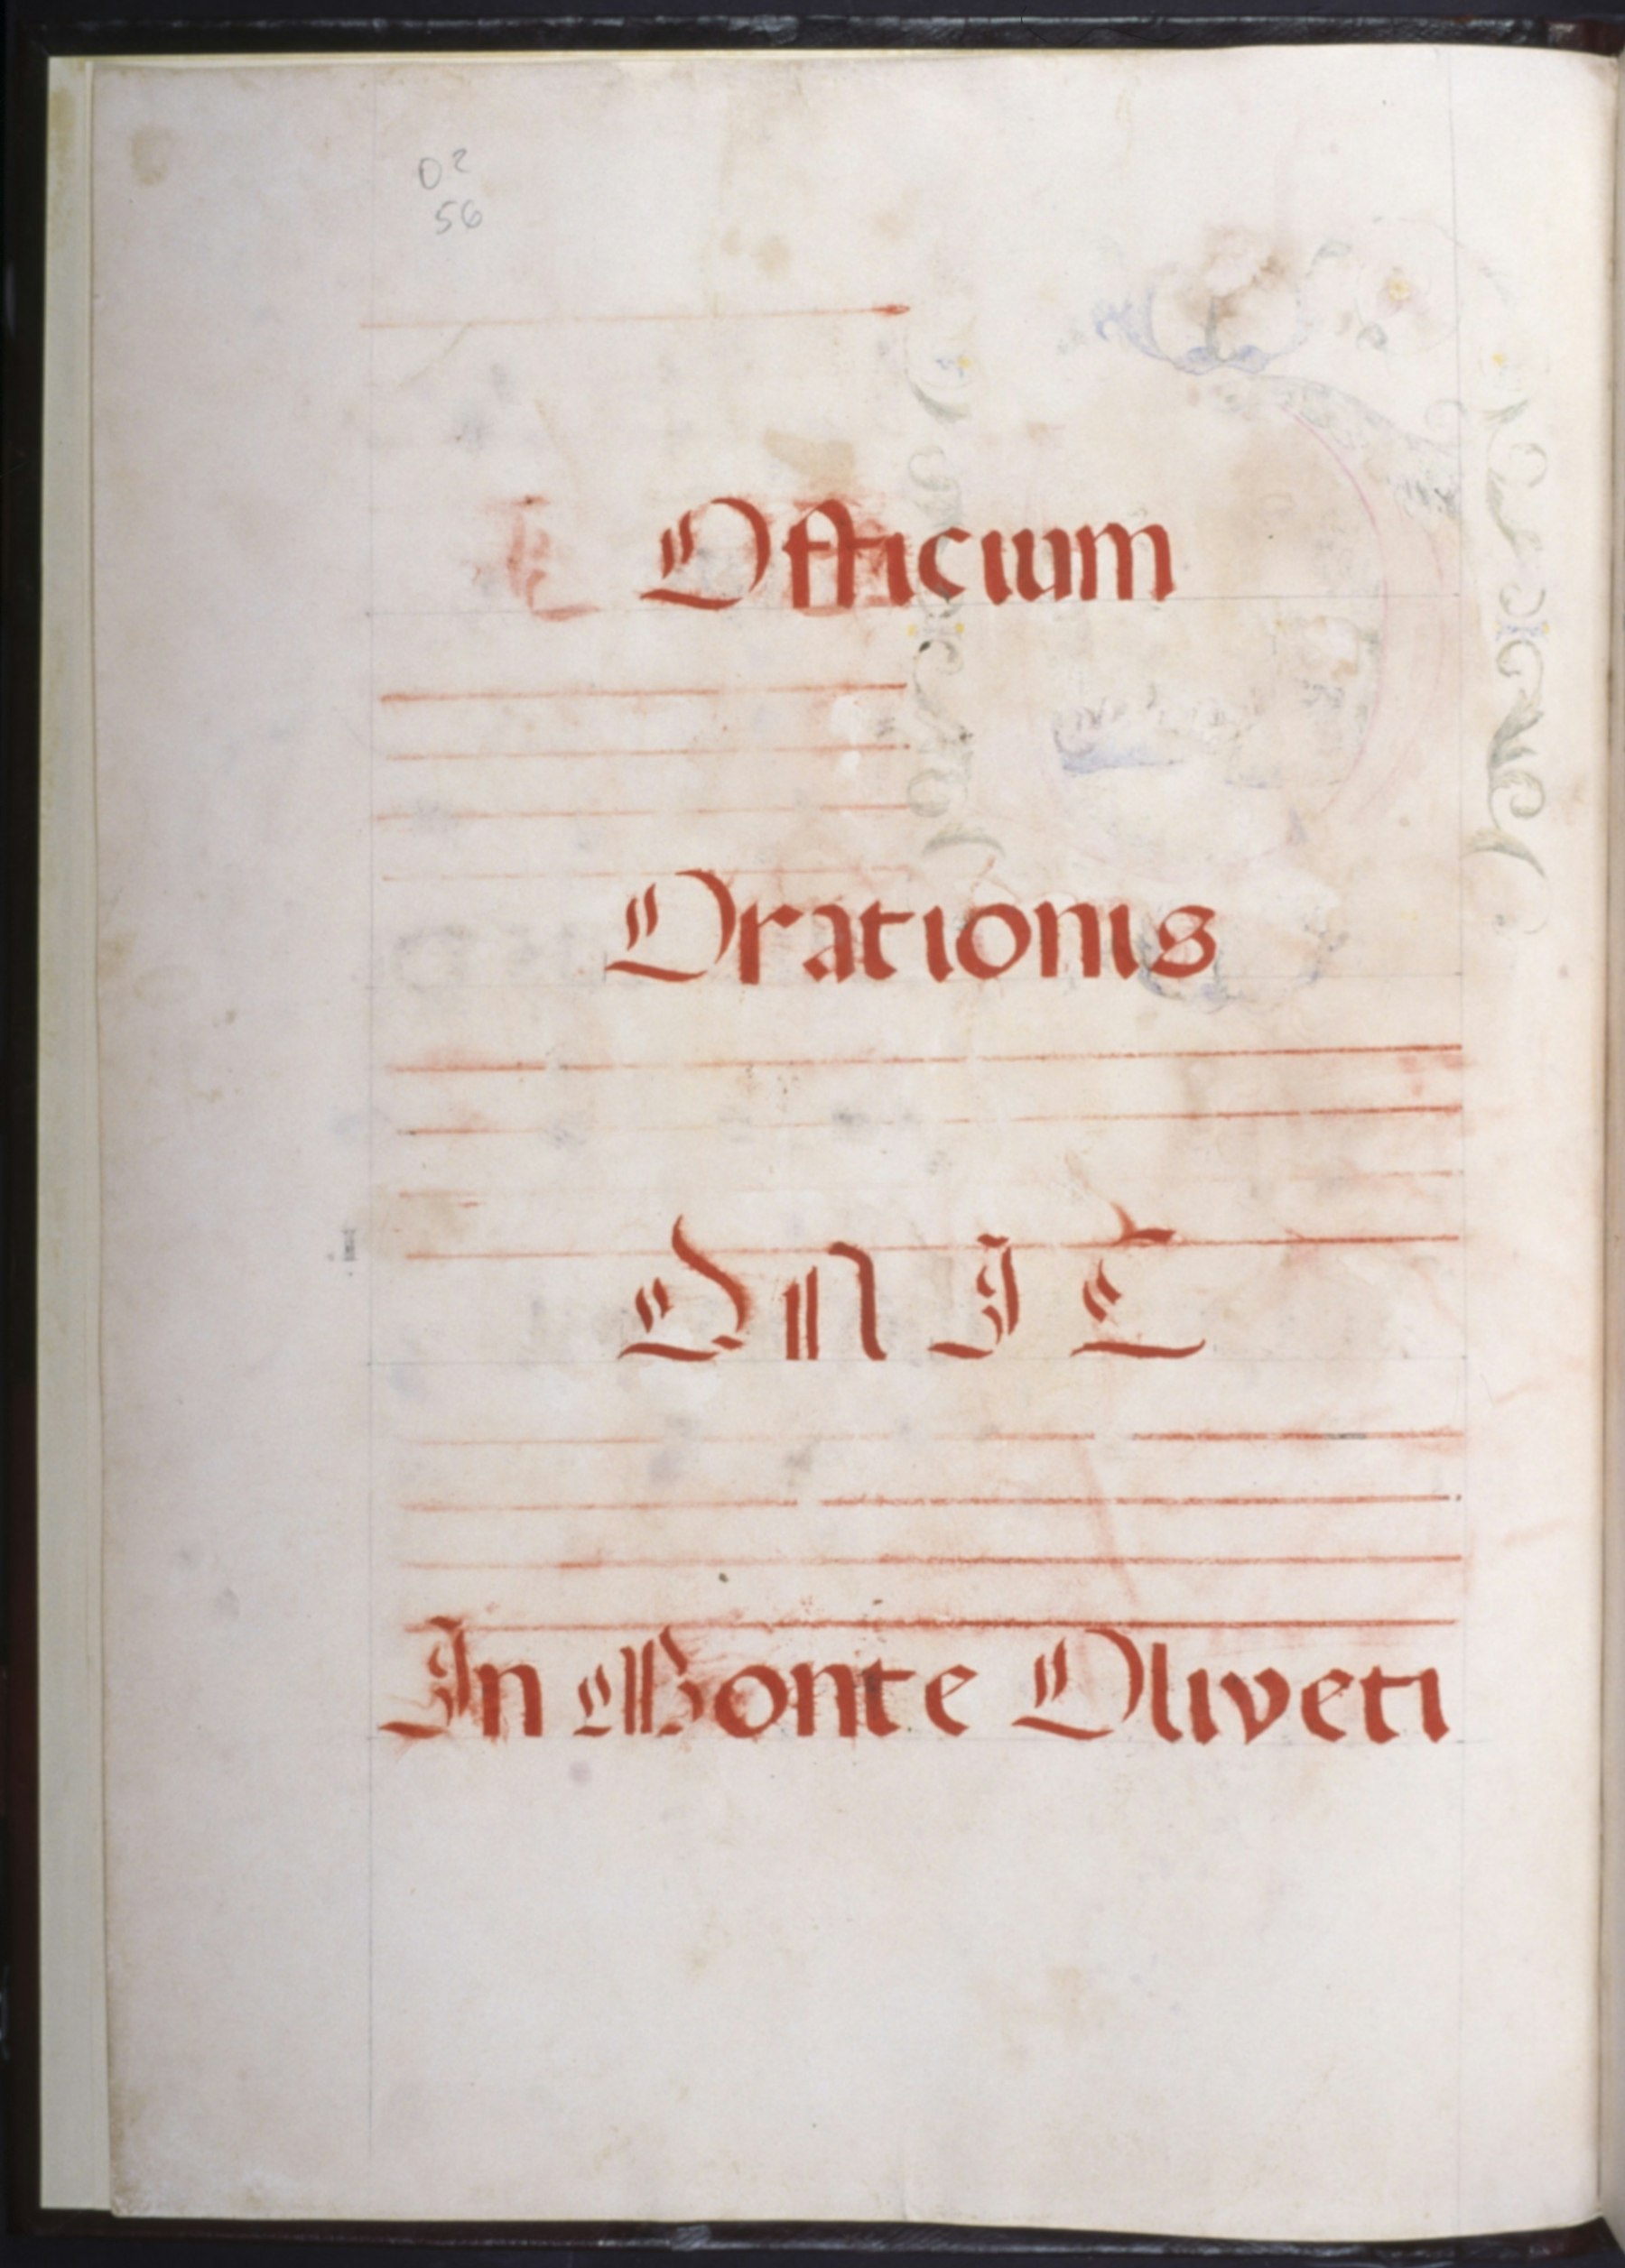 D2
56
Officium
Orationis
DN I C
In Monte Oliveti